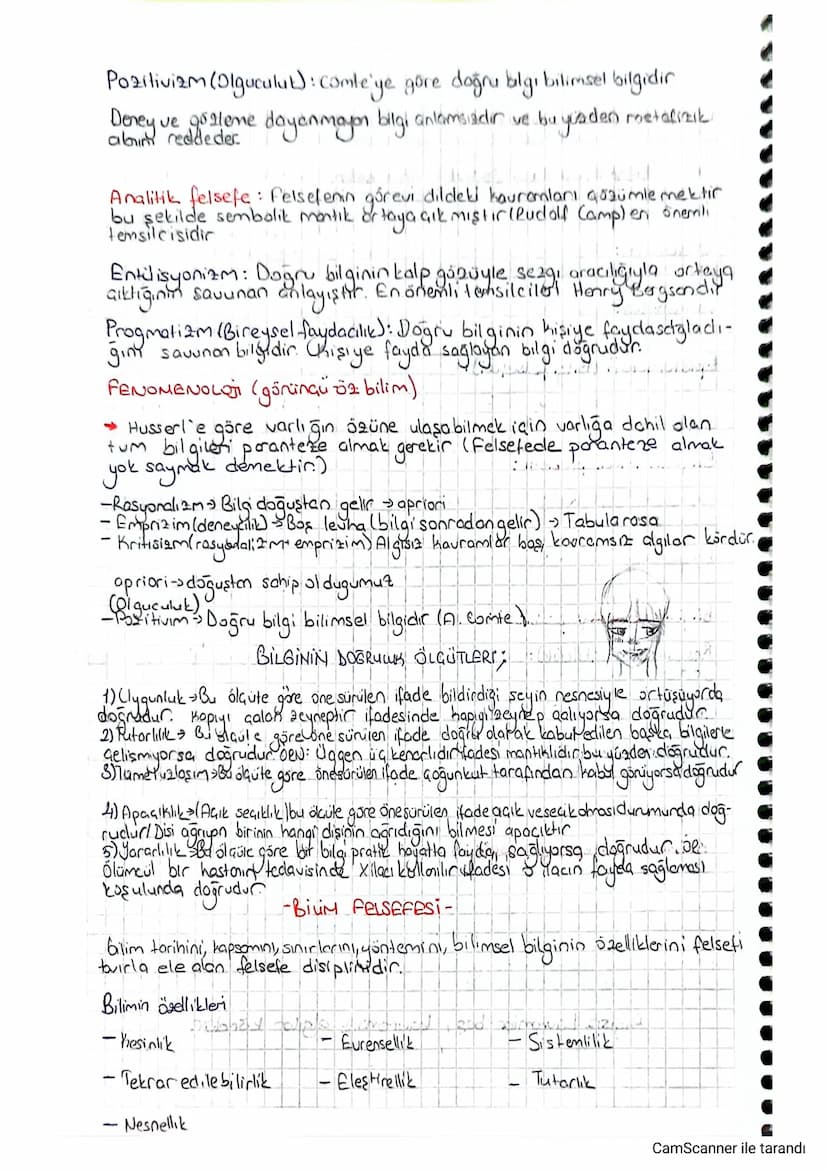 Pozitivizm (Olguculuk): comte'ye göre doğru bilgi bilimsel bilgidir
Deney ve gözleme dayanmayan bilgi anlamsızdır ve bu yüzden metafizik
alanını reddeder.
Analitik felsefe: Felsefenin görevi dildeki kavramları çözümlemektir
bu şekilde sembolik mantık ortaya çıkmıştır (Rudolf Camp) en önemli
temsilcisidir
Entüisyonizm: Doğru bilginin kalp gözüyle sezgi aracılığıyla ortaya
çıktığının savunan anlayıştır. En önemli temsilcileri Henry Bergsondır
Pragmatizm (Bireysel faydacılık): Doğru bilginin kişiye fayda sağladı-
ğını savunan bilgidir. Kişiye fayda sağlayan bilgi doğrudur.
FENOMENOLOJİ (görüngü öz bilim)
→ Husserl'e göre varlığın özüne ulaşabilmek için varlığa dahil olan
tüm bilgileri paranteze almak gerekir (Felsefede paranteze almak
yok saymak demektir.)
-Rasyonalizm → Bilgi doğuştan gelir → apriori
- Emprizim (deneycilik) → Boş levha (bilgi sonradan gelir) → Tabularasa
- Kritisizm (rasyonalizm + emprizim) Algısız kavramlar boş, kavramsız algılar kördür.
apriori → doğuştan sahip olduğumuz
(Olguculuk)
-Pozitivizm → Doğru bilgi bilimsel bilgidir (A. Comte)
BİLGİNİN DOĞRULUK ÖLÇÜTLERİ;
1) Uygunluk → Bu ölçüte göre öne sürülen ifade bildirdiği şeyin nesnesiyle örtüşüyorda
doğrudur. Kapıyı çalan zeyneptir ifadesinde kapıyı zeynep çalıyorsa doğrudur.
2) Tutarlılık → Bu ölçüte göre öne sürülen ifade doğru olarak kabul edilen başka bilgilerle
çelişmiyorsa doğrudur. ÖRN: Üçgen üç kenarlıdır ifadesi mantıklıdır bu yüzden doğrudur.
3) Tümel uzlaşım → Bu ölçüte göre öne sürülen ifade çoğunluk tarafından kabul görüyorsa doğrudur
4) Apaçıklık → (Açık seçiklik) bu ölçüte göre öne sürülen ifade açık ve seçik olması durumunda doğ-
rudur / Dişi ağrıyan birinin hangi dişinin ağrıdığını bilmesi apaçıktır
5) Yararlılık → Bu ölçüte göre bir bilgi pratik hayatta fayda sağlıyorsa doğrudur. ÖR:
Ölümcül bir hastanın tedavisinde X ilacı kullanılır ifadesi o ilacın fayda sağlaması
koşulunda doğrudur
-BİLİM FELSEFESİ-
bilim tarihini, kapsamını, sınırlarını, yöntemini, bilimsel bilginin özelliklerini felsefi
tavırla ele alan felsefe disiplinidir.
Bilimin özellikleri
- Kesinlik - Evrensellik - Sistemlilik
- Tekrar edilebilirlik - Eleştirellik - Tutarlık
- Nesnellik
CamScanner ile tarandı